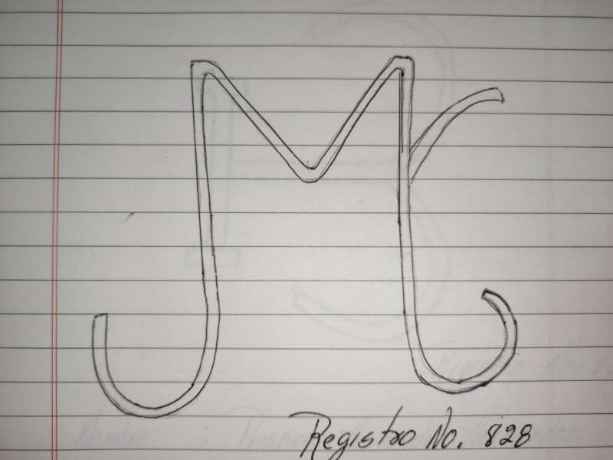 Registro No. 828